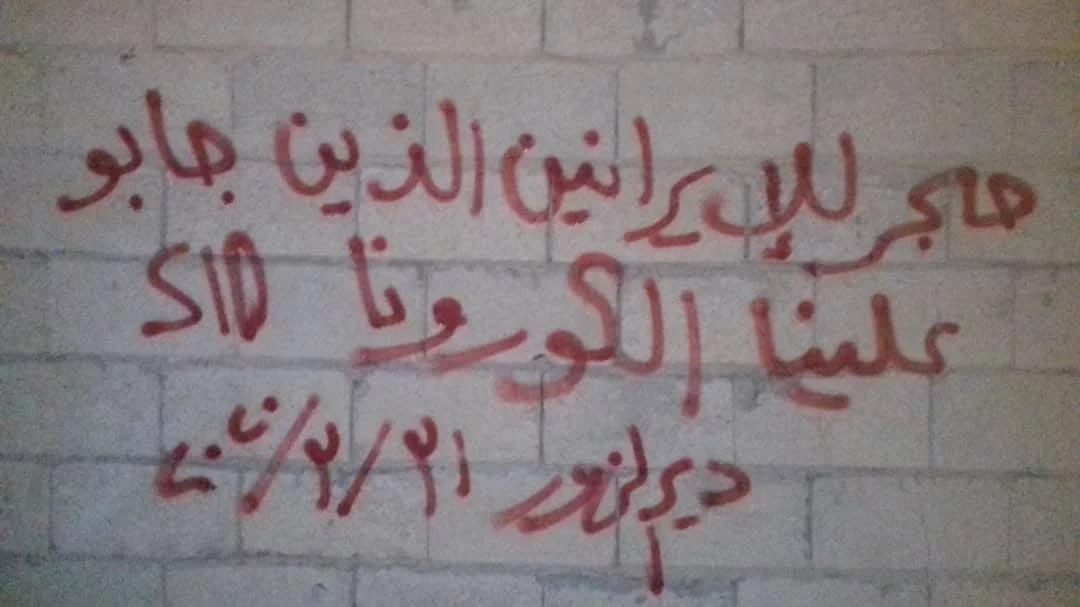 حجر للإيرانين الذين جابو
علينا الكورونا SID
دير الزور ٣١/٣/٢٠٢٠